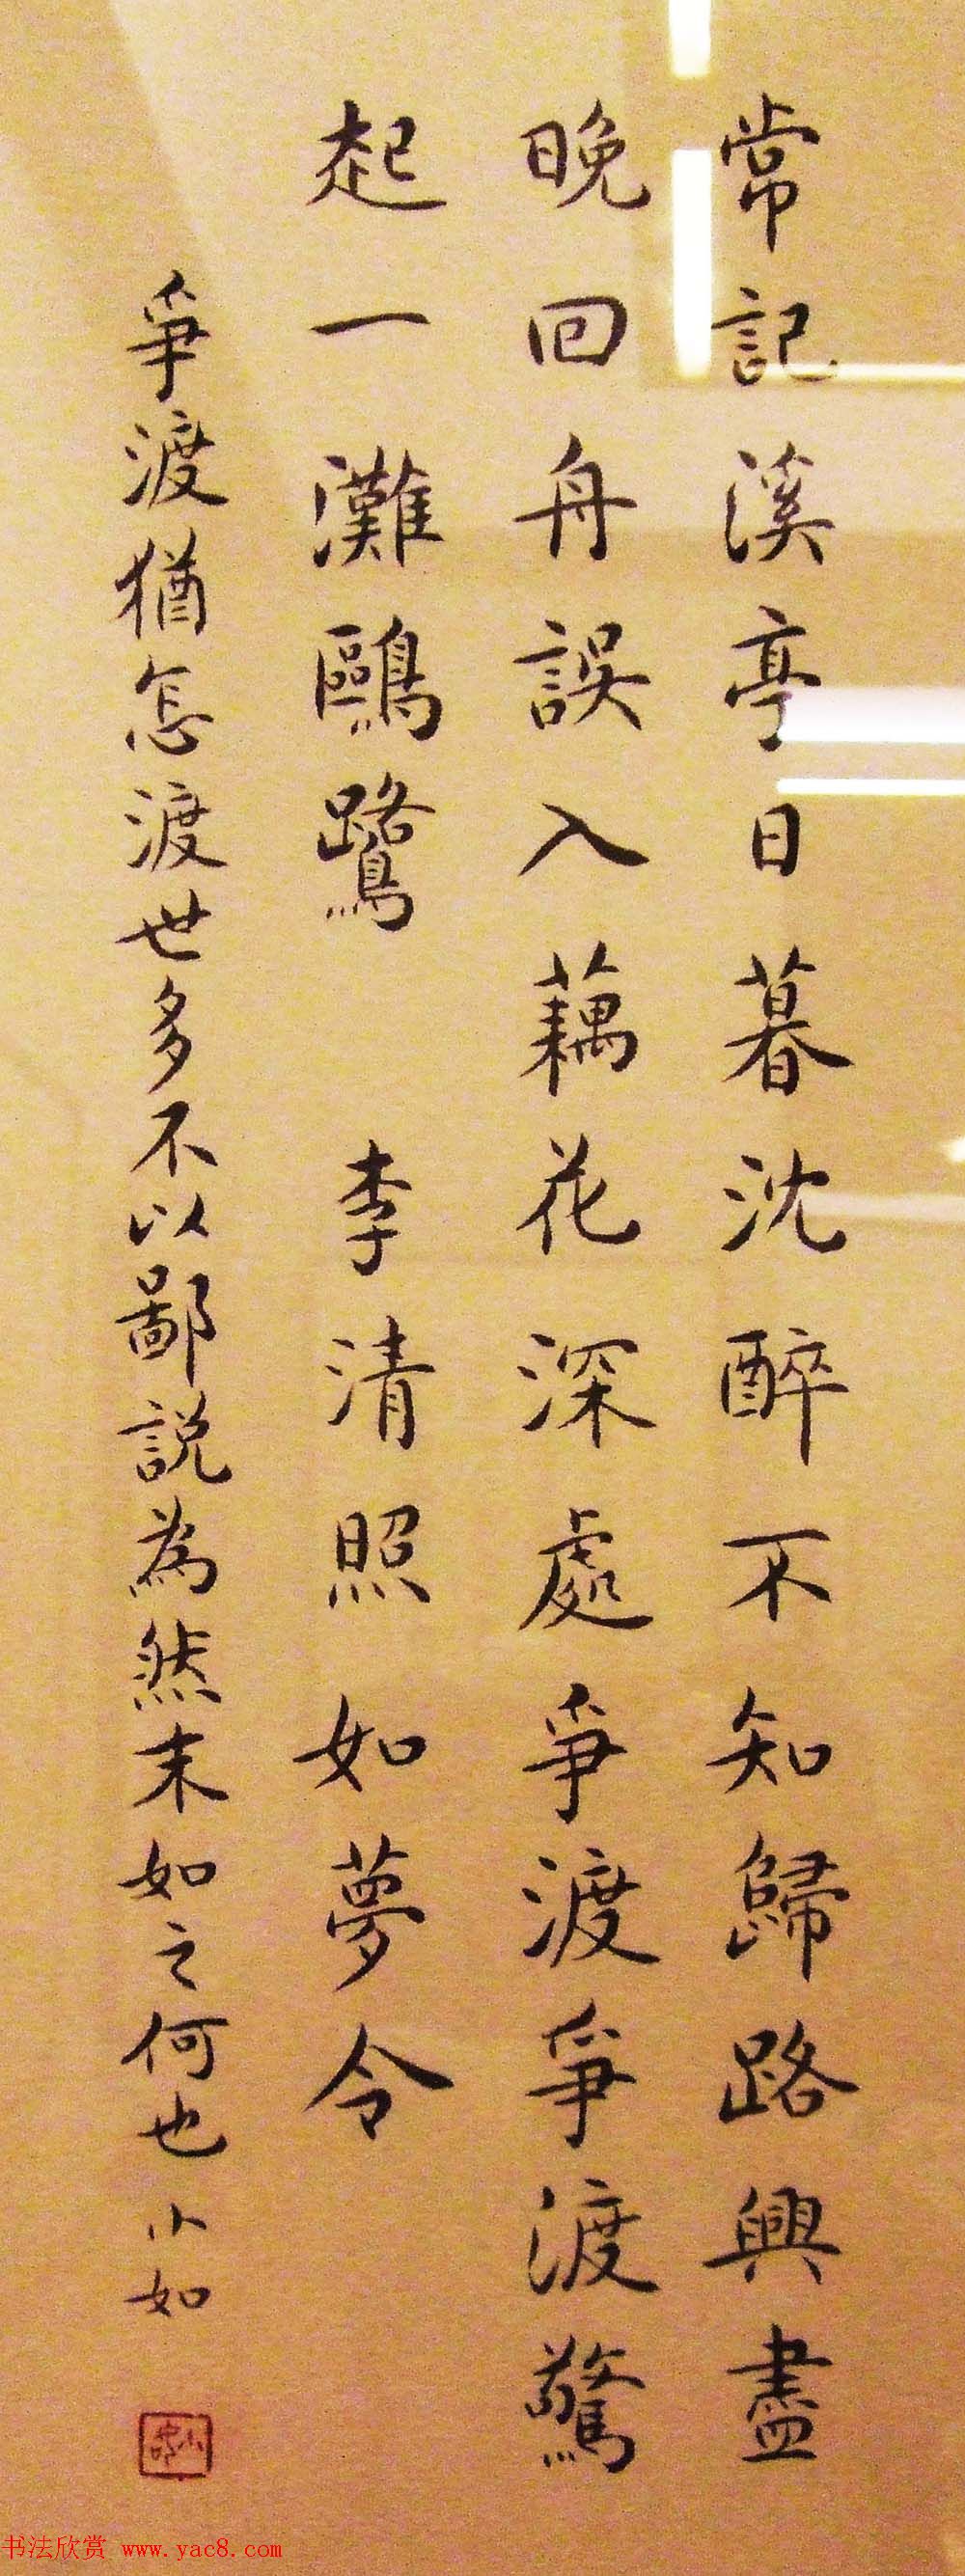 常記溪亭日暮沈醉不知歸路興盡
晚回舟誤入藕花深處爭渡爭渡驚
起一灘鷗鷺 李清照如夢令
爭渡猶怎渡世多不以鄙説為然末如之何也 小如
书法欣赏 www.yac8.com